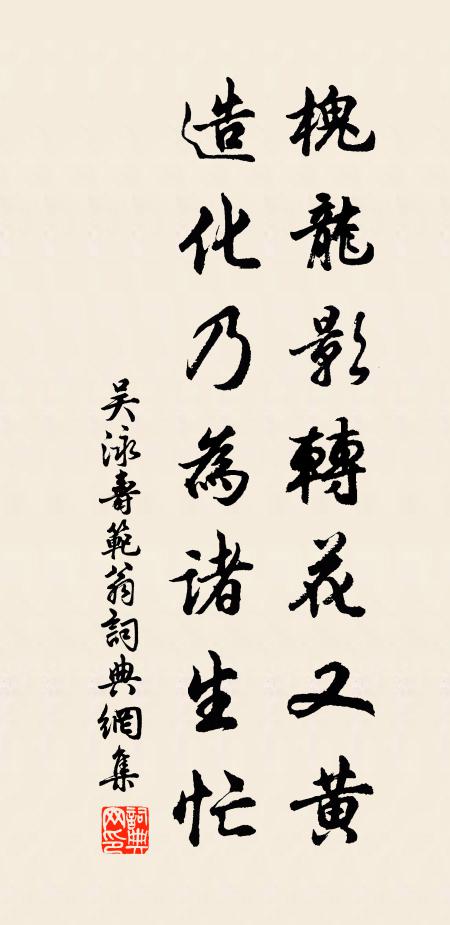 槐龍影轉花又黃
造化乃為諸生忙
吴泳壽範翁詞典網集
詞典網印